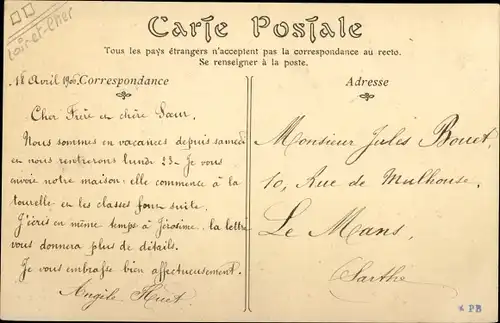 Loir-et-Cher
Carte Postale
Tous les pays étrangers n'acceptent pas la correspondance au recto.
Se renseigner à la poste.
18 Avril 190
Correspondance
Cher Frère et chère Sœur
Nous sommes en vacances depuis samedi
et nous rentrerons lundi 23. Je vous
envoie notre maison: elle commence à la
tourelle et les classes font suite.
J'écris en même temps à Jérosime: la lettre
vous donnera plus de détails.
Je vous embrasse bien affectueusement.
Angèle Huet
Adresse
Monsieur Jules Bouet,
10, Rue de Mulhouse,
Le Mans,
Sarthe
PB